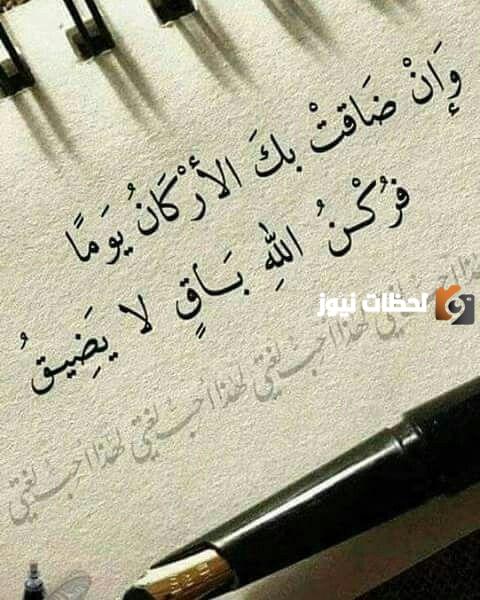 وَإِنْ ضَاقَتْ بِكَ الأَرْكَانُ يَومًا
فَرُكْنُ اللهِ بَاقٍ لا يَضِيقُ
لحظات نيوز
لهذا أحب لغتي لهذا أحب لغتي لهذا أحب لغتي لهذا أحب لغتي